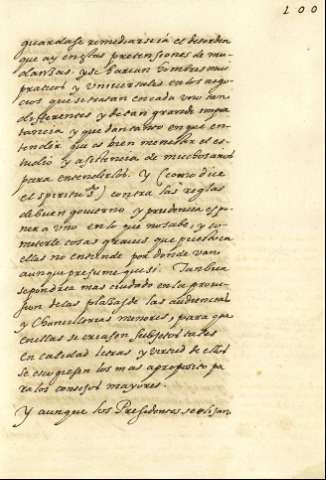 100
guardase remediarseia el desorden
que ay en las pretensiones de mu-
danças, y se harian hombres mui
praticos y universales en los nego
cios que se tratan en cada uno tan
differentes y de tan grande impor
tancia y que dan tanto en que en-
tender que es bien menester el es-
tudio y asistencia de muchos años
para entenderlos. Y (como dice
el spiritu sto) contra las reglas
de buen govierno y prudencia es po
ner a uno en lo que no sabe, y co
meterle cosas graves que
ellas no entiende por donde van
aunque presume que si. Tanbien
se pondria mas cuidado en la provi
sion de las plazas de las audiencias
y Chancillerias menores, para que
en ellas se criasen subjetos tales
en calidad letras y virtud de ellos
se escogiesen los mas aproposito pa
ra los consejos mayores.
Y aunque los Presidentes se elijan